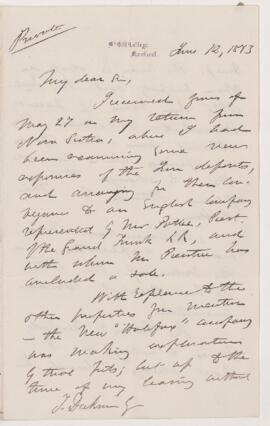 Private
McGill College,
Montreal.
June 12, 1873
My dear Sir,
I received yours of
May 27 on my return from
Nova Scotia, where I had
been examining some new
exposures of the Iron deposits,
and arranging for their con-
veyance to an English Company
represented by Mr Potter, Prest.
of the Grand Trunk RR, and
with whom Mr has
concluded a sale.
With reference to the
other properties you mention
— the New "Halifax" company
was making explorations
by trial pits; but up to the
time of my leaving without